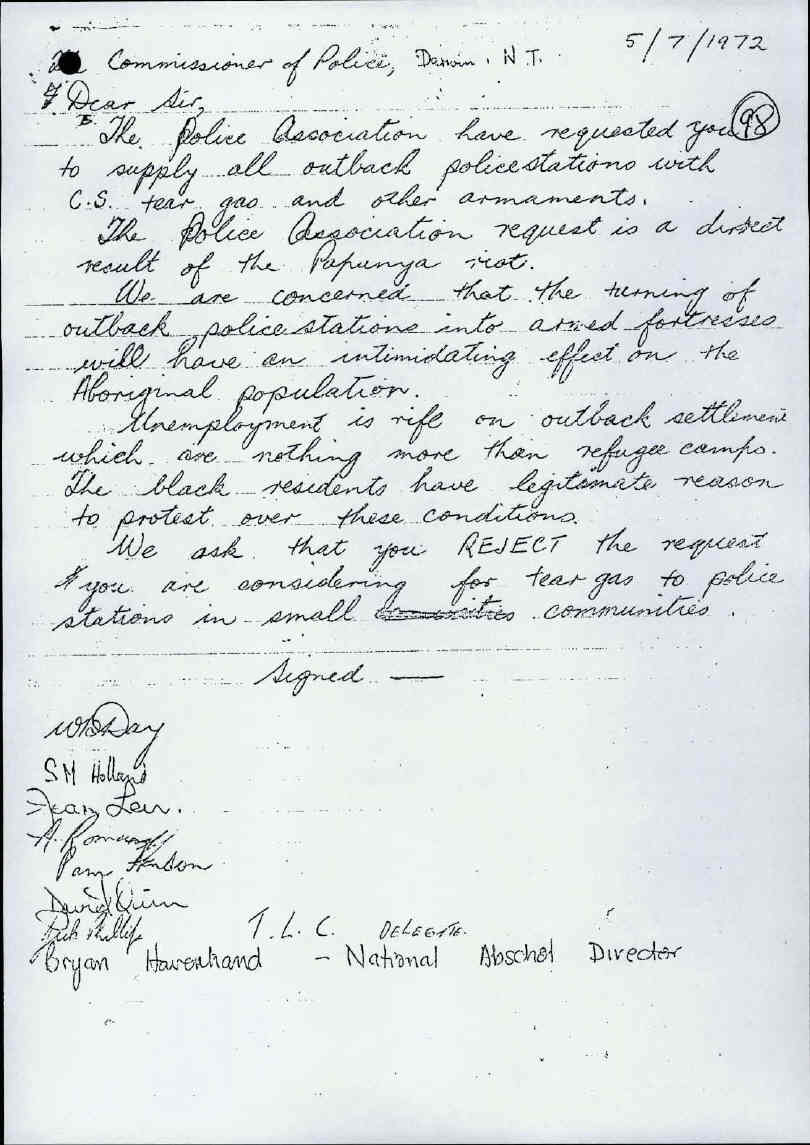 5/7/1972
Commissioner of Police, Darwin. N.T.
Dear Sir,
The Police Association have requested you
98
to supply all outback policestations with
C.S. tear gas and other armaments.
The Police Association request is a direct
result of the Papunya riot.
We are concerned that the turning of
outback police stations into armed fortresses
will have an intimidating effect on the
Aboriginal population.
Unemployment is rife on outback settlement
which are nothing more than refugee camps.
The black residents have legitimate reason
to protest over these conditions.
We ask that you REJECT the request
you are considering for tear gas to police
stations in small communities.
Signed —
WBDay
SM Holland
Jean
A.
Pam
David Quinn
Phillips T.L.C. DELEGATE.
Bryan Havenhand - National Abschol Director